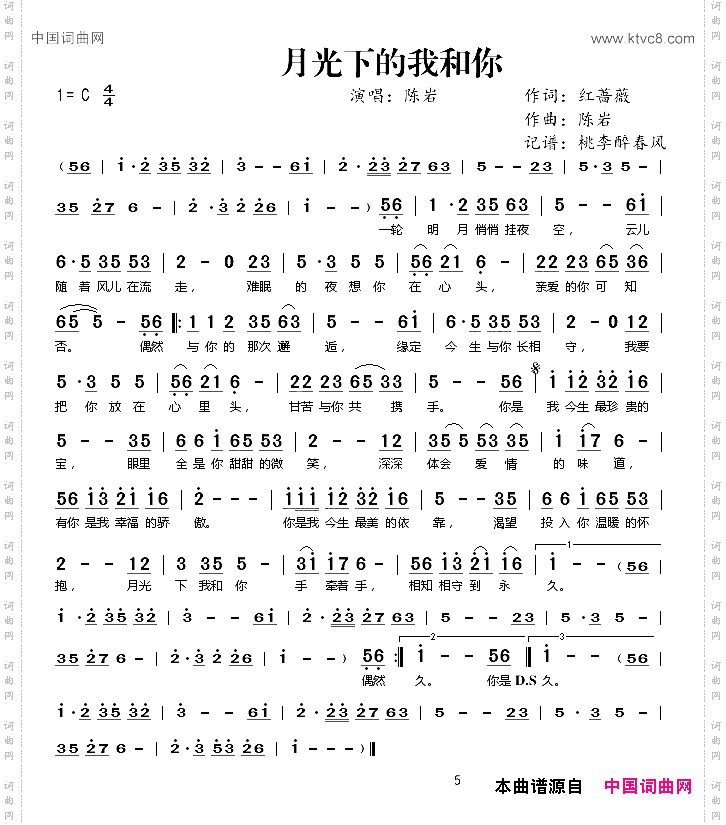 中国词曲网
www.ktvc8.com
月光下的我和你
1= C 4/4
演唱：陈岩
作词：红蔷薇
作曲：陈岩
记谱：桃李醉春风
(56 | i·2 35 32 | 3 - - 6i | 2·23 27 63 | 5 - - 23 | 5·35 -
35 27 6 - | 2·32 26 | i - - ) 56 | 1·2 35 63 | 5 - - 6i
一轮 明 月 悄悄 挂夜 空， 云儿
6·5 35 53 | 2 - 0 23 | 5·3 5 5 | 56 21 6 - | 22 23 65 36
随 着 风儿 在流 走， 难眠 的 夜 想 你 在 心 头， 亲爱 的你 可 知
65 5 - 56 ‖: 1 1 2 35 63 | 5 - - 6i | 6·5 35 53 | 2 - 0 12
否。 偶然 与 你 的 那次 邂 逅， 缘定 今 生 与你 长相 守， 我要
5·3 5 5 | 56 21 6 - | 22 23 65 33 | 5 - - 56 | i 12 32 16
把 你 放 在 心 里 头， 甘苦 与你 共 携 手。 你是 我 今生 最珍 贵的
5 - - 35 | 6 6 i 65 53 | 2 - - 12 | 35 5 53 35 | i i7 6 -
宝， 眼里 全 是 你 甜甜 的微 笑， 深深 体会 爱 情 的 味 道，
56 13 21 16 | 2 - - - | iii 12 32 16 | 5 - - 35 | 6 6 i 65 53
有你 是我 幸福 的骄 傲。 你是我 今生 最美 的依 靠， 渴望 投 入 你 温暖 的怀
2 - - 12 | 3 35 5 - | 3i i7 6 - | 56 13 21 16 | 1 i - - (56
抱， 月光 下 我和 你 手 牵着 手， 相知 相守 到 永 久。
i·2 35 32 | 3 - - 6i | 2·23 27 63 | 5 - - 23 | 5·35 -
35 27 6 - | 2·32 26 | i - - ) 56 :‖ 2 i - - 56 ‖ 3 i - - (56
偶然 久。 你是 D.S 久。
i·2 35 32 | 3 - - 6i | 2·23 27 63 | 5 - - 23 | 5·35 -
35 27 6 - | 2·3 53 26 | i - - - )‖
5
本曲谱源自 中国词曲网